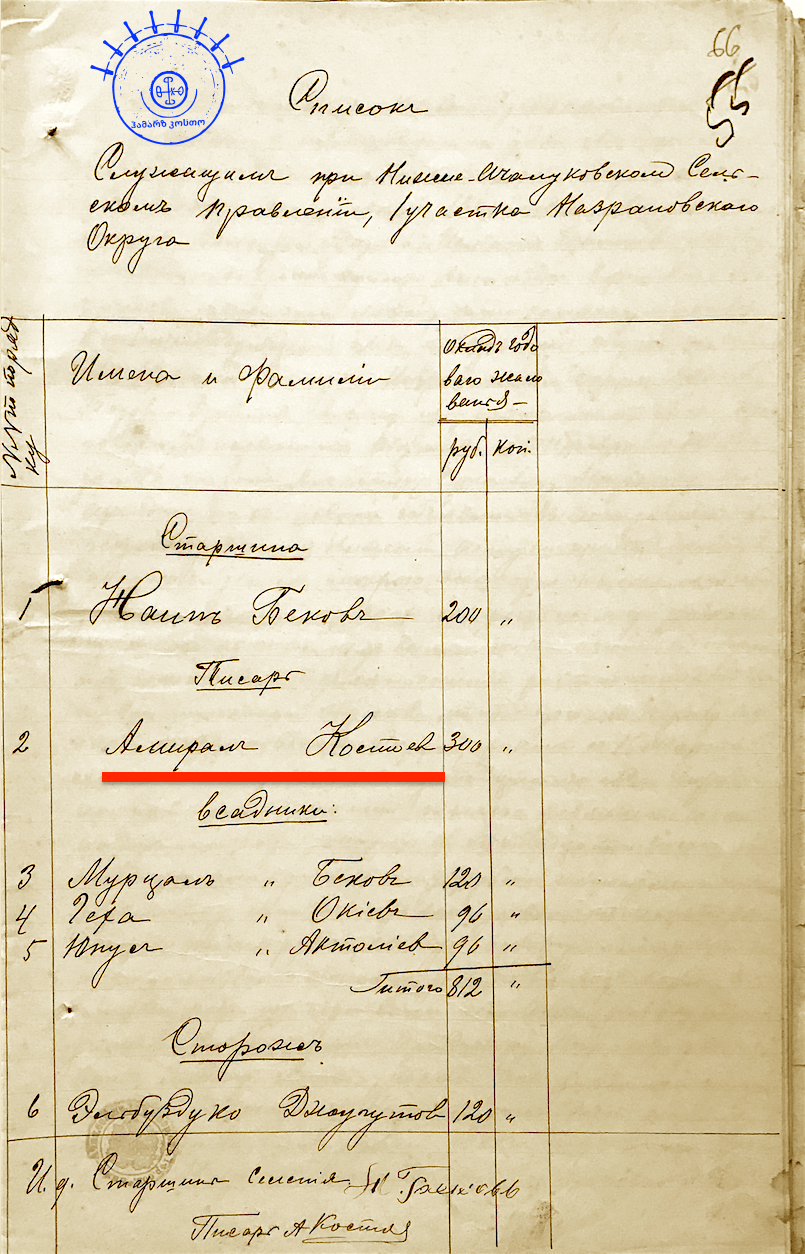 66
55
ჰამარზ კოსთო
Списокъ
Служащимъ при Нижне-Ачалуковском Сель-
скомъ Правленіи, 1 участка Назрановскаго
Округа
№№ по поряд
ку
Имена и Фамиліи
Окладъ годо
ваго жало
ванія
руб. коп.
Старшина
1 Наипъ Бековъ 200 „
Писарь
2 Амиралъ Костоев 300 „
всадники:
3 Мурцалъ „ Бековъ 120 „
4 Геха „ Окіевъ 96 „
5 Юнусъ „ Актоліев 96 „
Итого 812 „
Сторожъ
6 Эльбуздуко Джаугутов 120 „
И. д. Старшина селенія
Писарь А Костоев